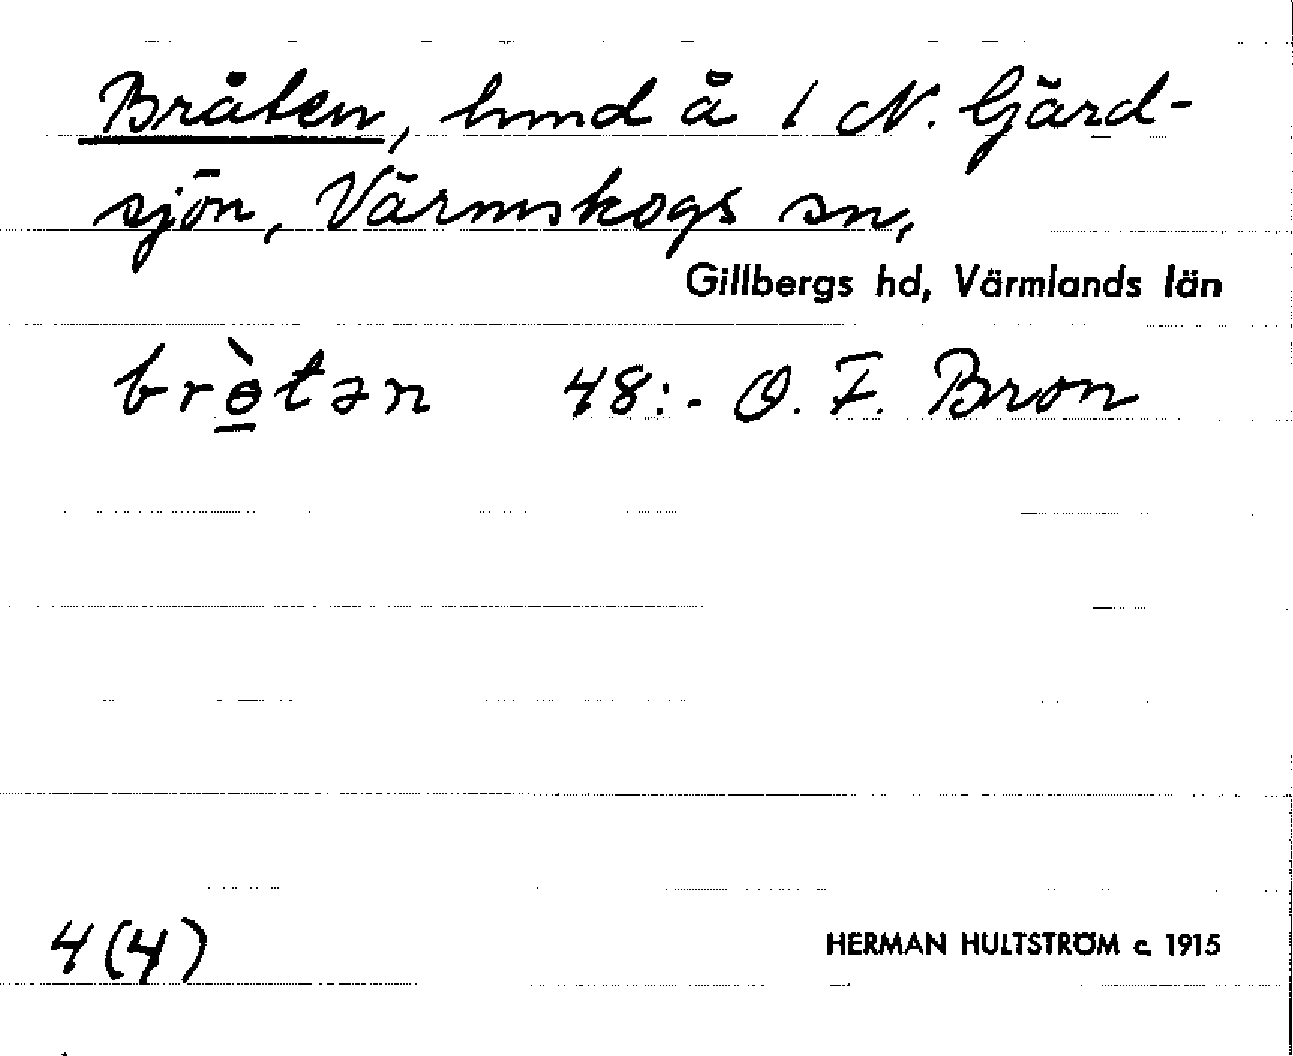 Bråten, hmd å 1 N. Gärd-
sjön, Värmskogs sn,
Gillbergs hd, Värmlands län
brèt̲ən 48:- O. F. Bron
4(4)
HERMAN HULTSTRÖM c. 1915